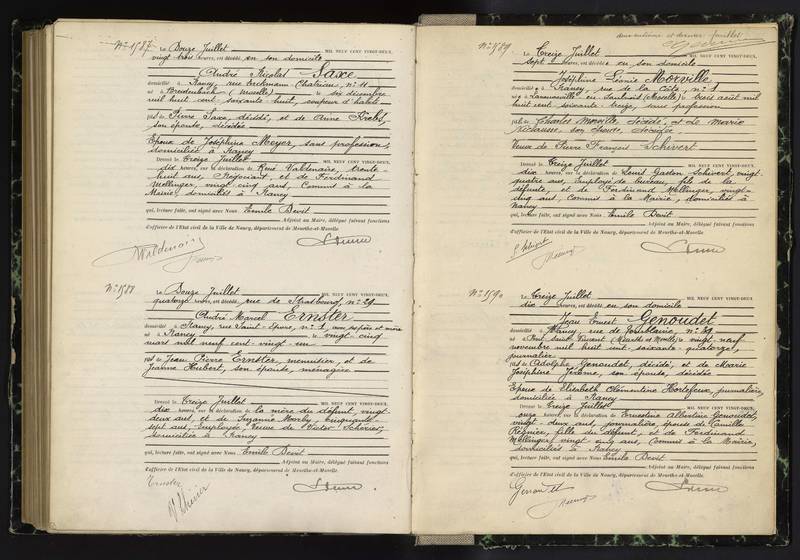 N° 1587 Le Douze Juillet MIL NEUF CENT VINGT-DEUX,
vingt trois heures, est décédé en son domicile
André Nicolas Saxe
domicilié à Nancy, rue Erckmann-Chatrian, n° 11
né à Bredenbach (Moselle) le six décembre
mil huit cent soixante huit, coupeur d'habits
fils de Pierre Saxe, décédé, et de Anne Krebs,
son épouse, décédée
Epoux de Joséphine Meyer, sans profession,
domiciliée à Nancy
Dressé le Treize Juillet MIL NEUF CENT VINGT-DEUX,
dix heures, sur la déclaration de René Valdenaire, trente-
huit ans, Négociant, et de Ferdinand
Mellinger, vingt-cinq ans, Commis à la
Mairie, domiciliés à Nancy
qui, lecture faite, ont signé avec Nous Emile Bevit
Adjoint au Maire, délégué faisant fonctions
d'officier de l'Etat civil de la Ville de Nancy, département de Meurthe-et-Moselle
N° 1588 Le Douze Juillet MIL NEUF CENT VINGT-DEUX,
quatorze heures, est décédé, rue de Strasbourg, n° 29
André Marcel Ernster
domicilié à Nancy, rue Saint-Epvre, n° 1, avec ses père et mère
né à Nancy le vingt cinq
mars mil neuf cent vingt un
fils de Jean Pierre Ernster, menuisier, et de
Jeanne Hubert, son épouse, ménagère
Dressé le Treize Juillet MIL NEUF CENT VINGT-DEUX,
dix heures, sur la déclaration de la mère du défunt, vingt
deux ans, et de Suzanne cinquante
sept ans, Employée, Veuve de Victor
domiciliée à Nancy
qui, lecture faite, ont signé avec Nous Emile Bevit
Adjoint au Maire, délégué faisant fonctions
d'officier de l'Etat civil de la Ville de Nancy, département de Meurthe-et-Moselle
Ernster
deux-centième et dernier feuillet
N° 1589 Le Treize Juillet MIL NEUF CENT VINGT-DEUX,
sept heures, est décédée en son domicile
Joséphine Léonie Morville,
domiciliée à Nancy, rue de la Côte, n° 1
née à (Moselle) le trois août mil
huit cent soixante treize, sans profession
fille de Charles Morville, décédé, et de Marie
son épouse, décédée
Veuve de Pierre François Schivert
Dressé le Treize Juillet MIL NEUF CENT VINGT-DEUX,
dix heures, sur la déclaration de Louis Gaston Schivert, vingt-
quatre ans, Employé de bureau, fils de la
défunte, et de Ferdinand Mellinger, vingt-
cinq ans, Commis à la Mairie, domiciliés à
Nancy
qui, lecture faite, ont signé avec Nous Emile Bevit
Adjoint au Maire, délégué faisant fonctions
d'officier de l'Etat civil de la Ville de Nancy, département de Meurthe-et-Moselle
N° 1590 Le Treize Juillet MIL NEUF CENT VINGT-DEUX,
dix heures, est décédé en son domicile
Jean Ernest Genoudet
domicilié à Nancy, rue de n° 29
né à Pont Saint Vincent (Meurthe et Moselle) le vingt neuf
novembre mil huit cent soixante quatorze,
journalier
fils de Adolphe Genoudet, décédé, et de Marie
Joséphine Jérôme, son épouse, décédée
Epoux de Elisabeth Clémentine Hortefeux, journalière,
domiciliée à Nancy
Dressé le Treize Juillet MIL NEUF CENT VINGT-DEUX,
onze heures, sur la déclaration de Ernestine Albertine Genoudet,
vingt-deux ans, journalière, épouse de Camille
fille du défunt, et de Ferdinand
Mellinger, vingt cinq ans, Commis à la Mairie,
domiciliés à Nancy
qui, lecture faite, ont signé avec Nous Emile Bevit
Adjoint au Maire, délégué faisant fonctions
d'officier de l'Etat civil de la Ville de Nancy, département de Meurthe-et-Moselle
Genoudet